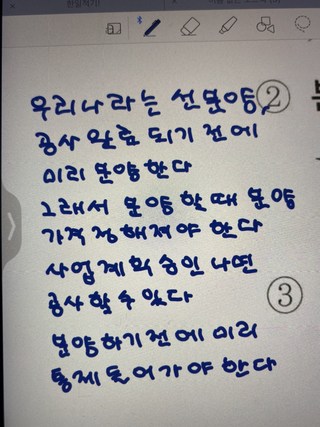 우리나라는 선분양, ②
공사 완료 되기 전에
미리 분양한다
그래서 분양 할 때 분양
가격 정해져야 한다
사업계획승인 나면
공사 할 수 있다
③
분양하기 전에 미리
통제 들어가야 한다